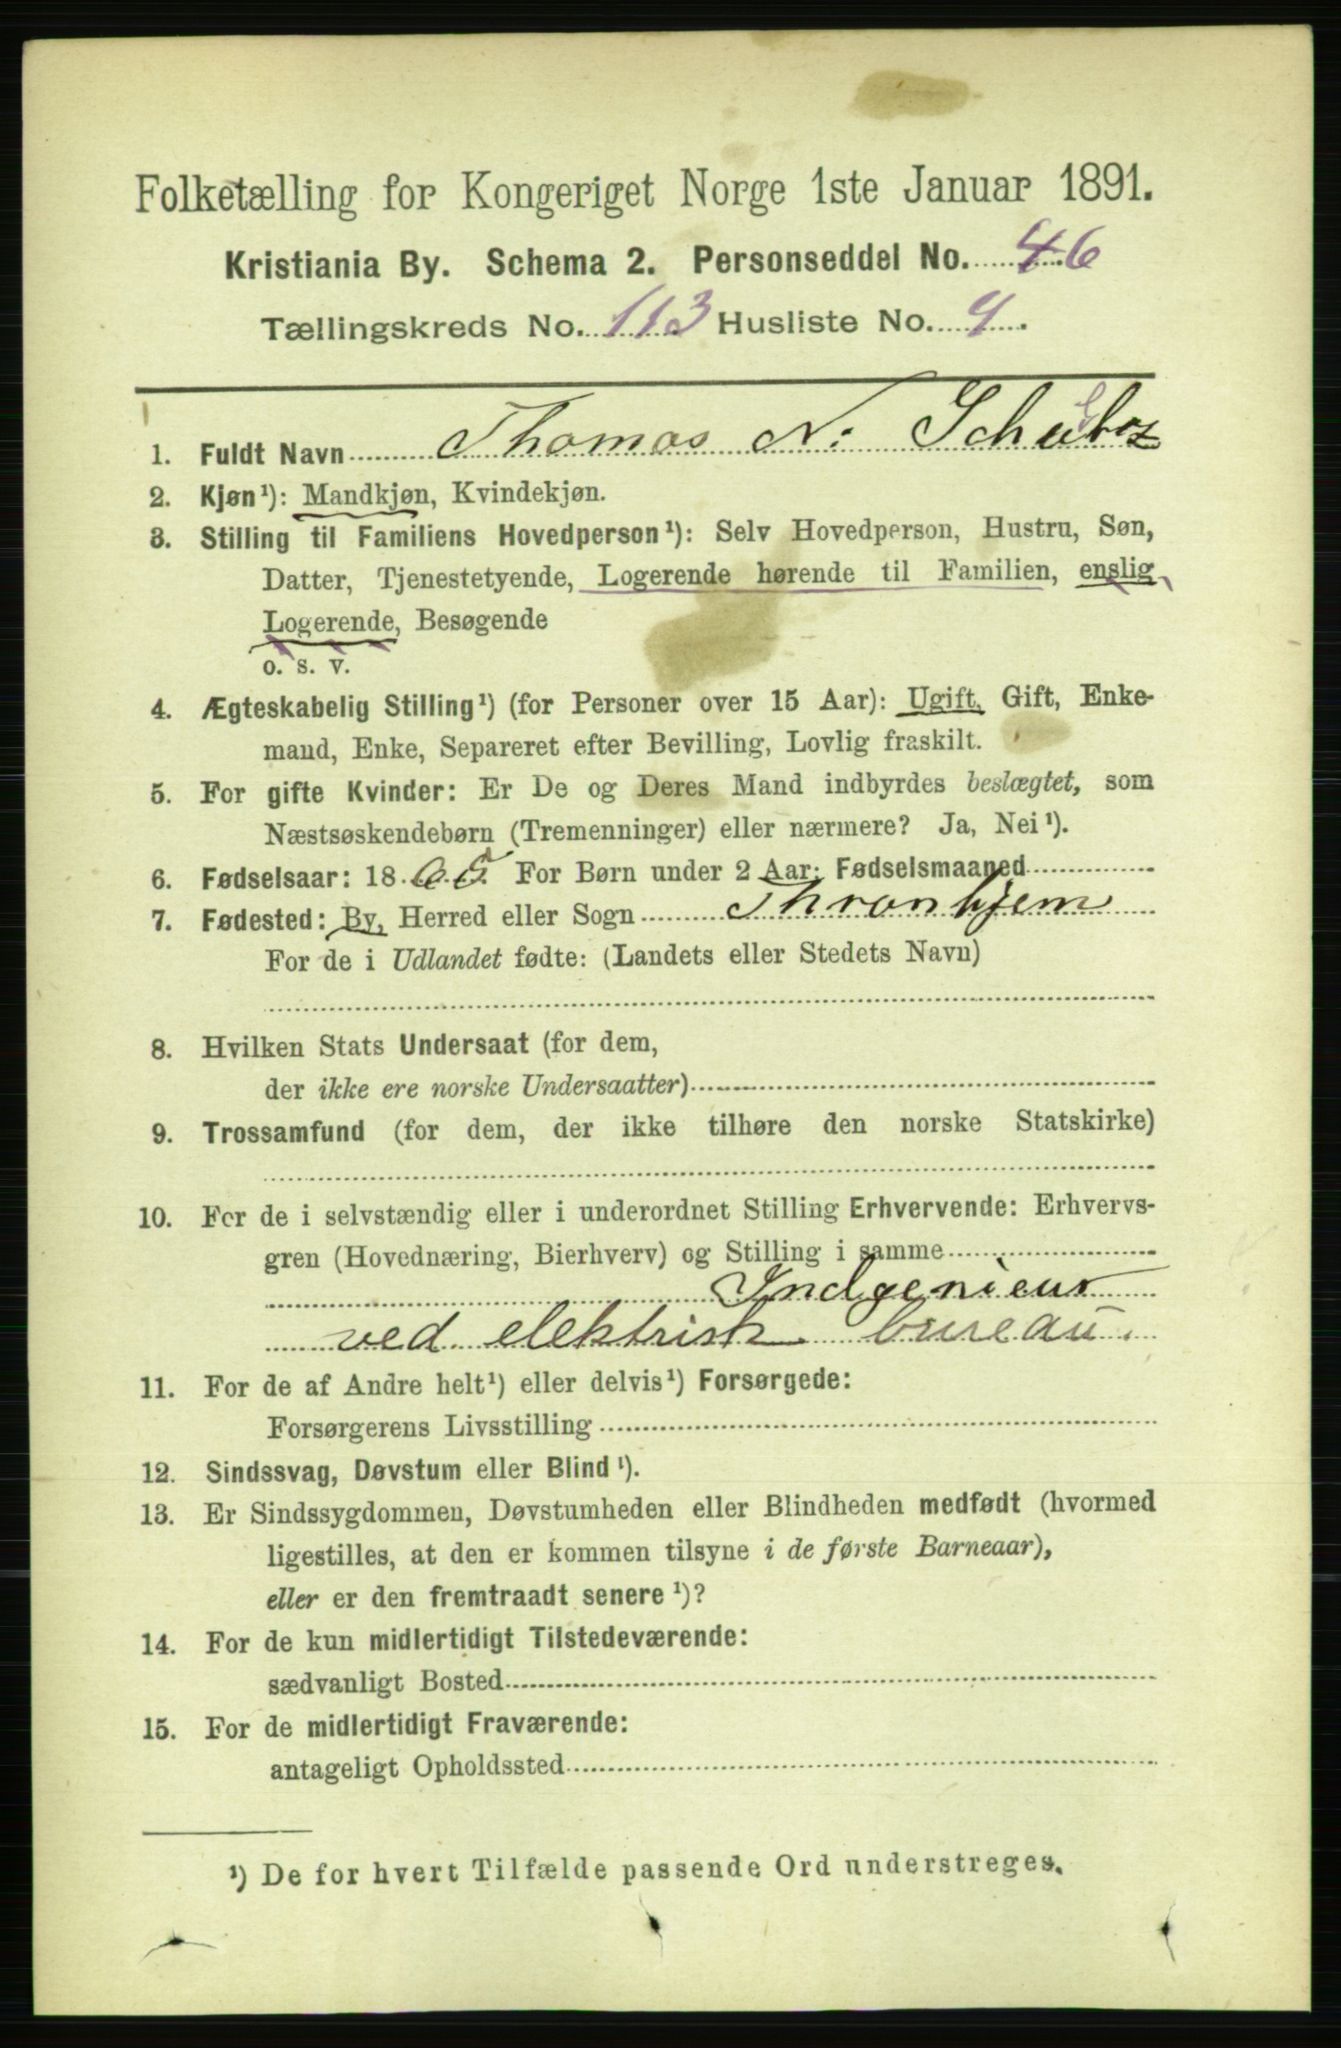 Folketælling for Kongeriget Norge 1ste Januar 1891.
Kristiania By. Schema 2. Personseddel No. 46
Tællingskreds No. 113 Husliste No. 4.
1. Fuldt Navn Thomas N:
2. Kjøn¹): Mandkjøn, Kvindekjøn.
3. Stilling til Familiens Hovedperson¹): Selv Hovedperson, Hustru, Søn,
Datter, Tjenestetyende, Logerende hørende til Familien, enslig
Logerende, Besøgende
o. s. v.
4. Ægteskabelig Stilling¹) (for Personer over 15 Aar): Ugift, Gift, Enke-
mand, Enke, Separeret efter Bevilling, Lovlig fraskilt.
5. For gifte Kvinder: Er De og Deres Mand indbyrdes beslægtet, som
Næstsøskendebørn (Tremenninger) eller nærmere? Ja, Nei¹).
6. Fødselsaar: 18 65 For Børn under 2 Aar: Fødselsmaaned
7. Fødested: By, Herred eller Sogn Thronhjem
For de i Udlandet fødte: (Landets eller Stedets Navn)
8. Hvilken Stats Undersaat (for dem,
der ikke ere norske Undersaatter)
9. Trossamfund (for dem, der ikke tilhøre den norske Statskirke)
10. For de i selvstændig eller i underordnet Stilling Erhvervende: Erhvervs-
gren (Hovednæring, Bierhverv) og Stilling i samme
Indgenieur
ved elektrisk bureau.
11. For de af Andre helt¹) eller delvis¹) Forsørgede:
Forsørgerens Livsstilling
12. Sindssvag, Døvstum eller Blind¹).
13. Er Sindssygdommen, Døvstumheden eller Blindheden medfødt (hvormed
ligestilles, at den er kommen tilsyne i de første Barneaar),
eller er den fremtraadt senere¹)?
14. For de kun midlertidigt Tilstedeværende:
sædvanligt Bosted
15. For de midlertidigt Fraværende:
antageligt Opholdssted
¹) De for hvert Tilfælde passende Ord understreges.